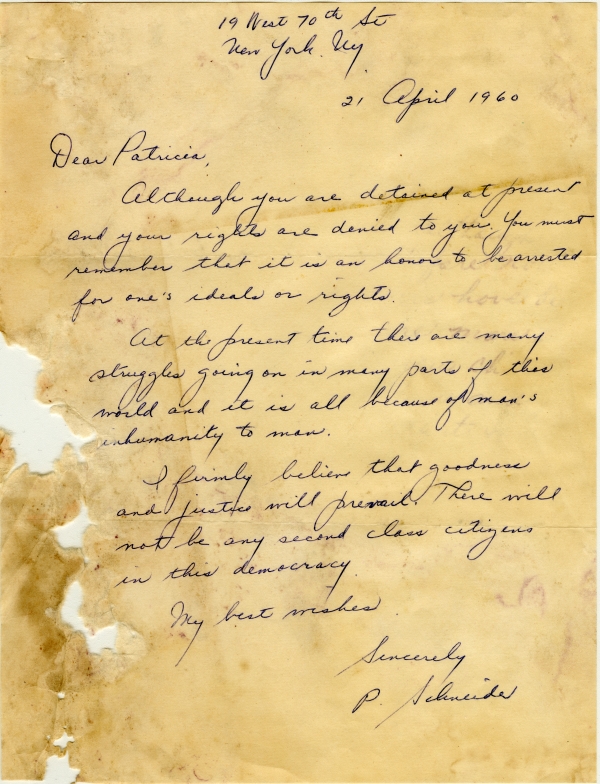 19 West 70th St
New York. Ny
21 April 1960
Dear Patricia,
Although you are detained at present
and your rights are denied to you. You must
remember that it is an honor to be arrested
for one's ideals or rights.
At the present time there are many
struggles going on in many parts of this
world and it is all because of man's
inhumanity to man.
I firmly believe that goodness
and justice will prevail. There will
not be any second class citizens
in this democracy
My best wishes
Sincerely
P. Schneider